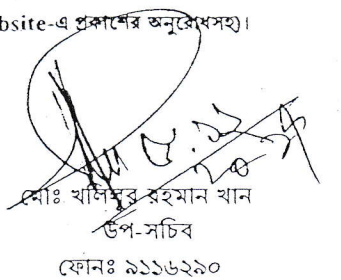 bsite-এ প্রকাশের অনুরোধসহ)।
মোঃ খলিলুর রহমান খান
উপ-সচিব
ফোনঃ ৯১১৬২৯০